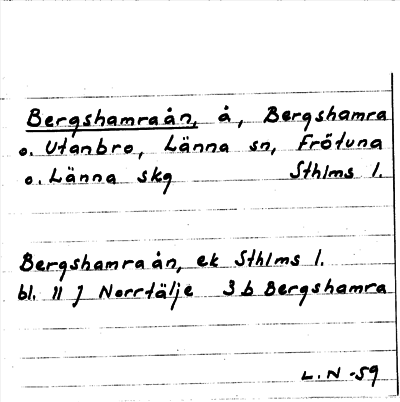 Bergshamraån, å, Bergshamra
o. Utanbro, Länna sn, Frötuna
o. Länna skg Sthlms l.
Bergshamraån, ek Sthlms l.
bl. 11 J Norrtälje 3 b Bergshamra
L.N -59